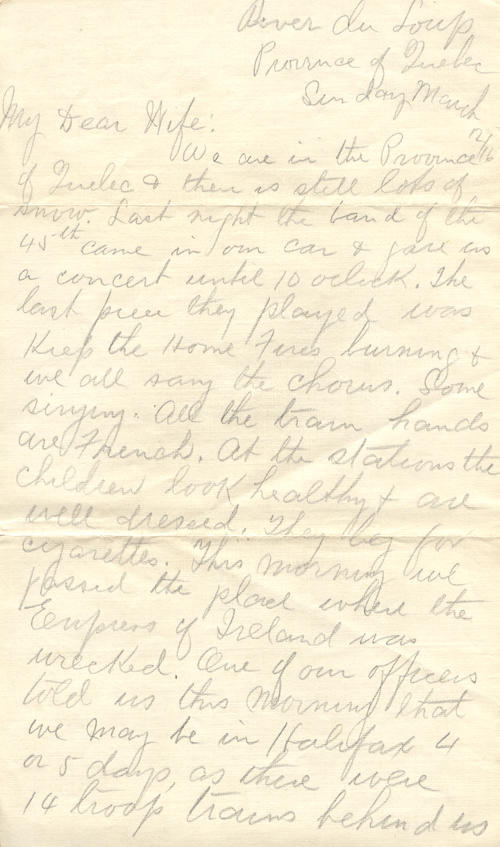 River du Loup
Province of Quebec
Sunday March
12/16
My Dear Wife:
We are in the Province
of Quebec & there is still lots of
snow. Last night the band of the
45th came in our car & gave us
a concert until 10 oclock. The
last piece they played was
Keep the Home Fires burning &
we all sang the chorus. Some
singing. All the train hands
are French. At the stations the
children look healthy & are
well dressed. They beg for
cigarettes. This morning we
passed the place where the
Empress of Ireland was
wrecked. One of our officers
told us this morning that
we may be in Halifax 4
or 5 days, as there were
14 troop trains behind us